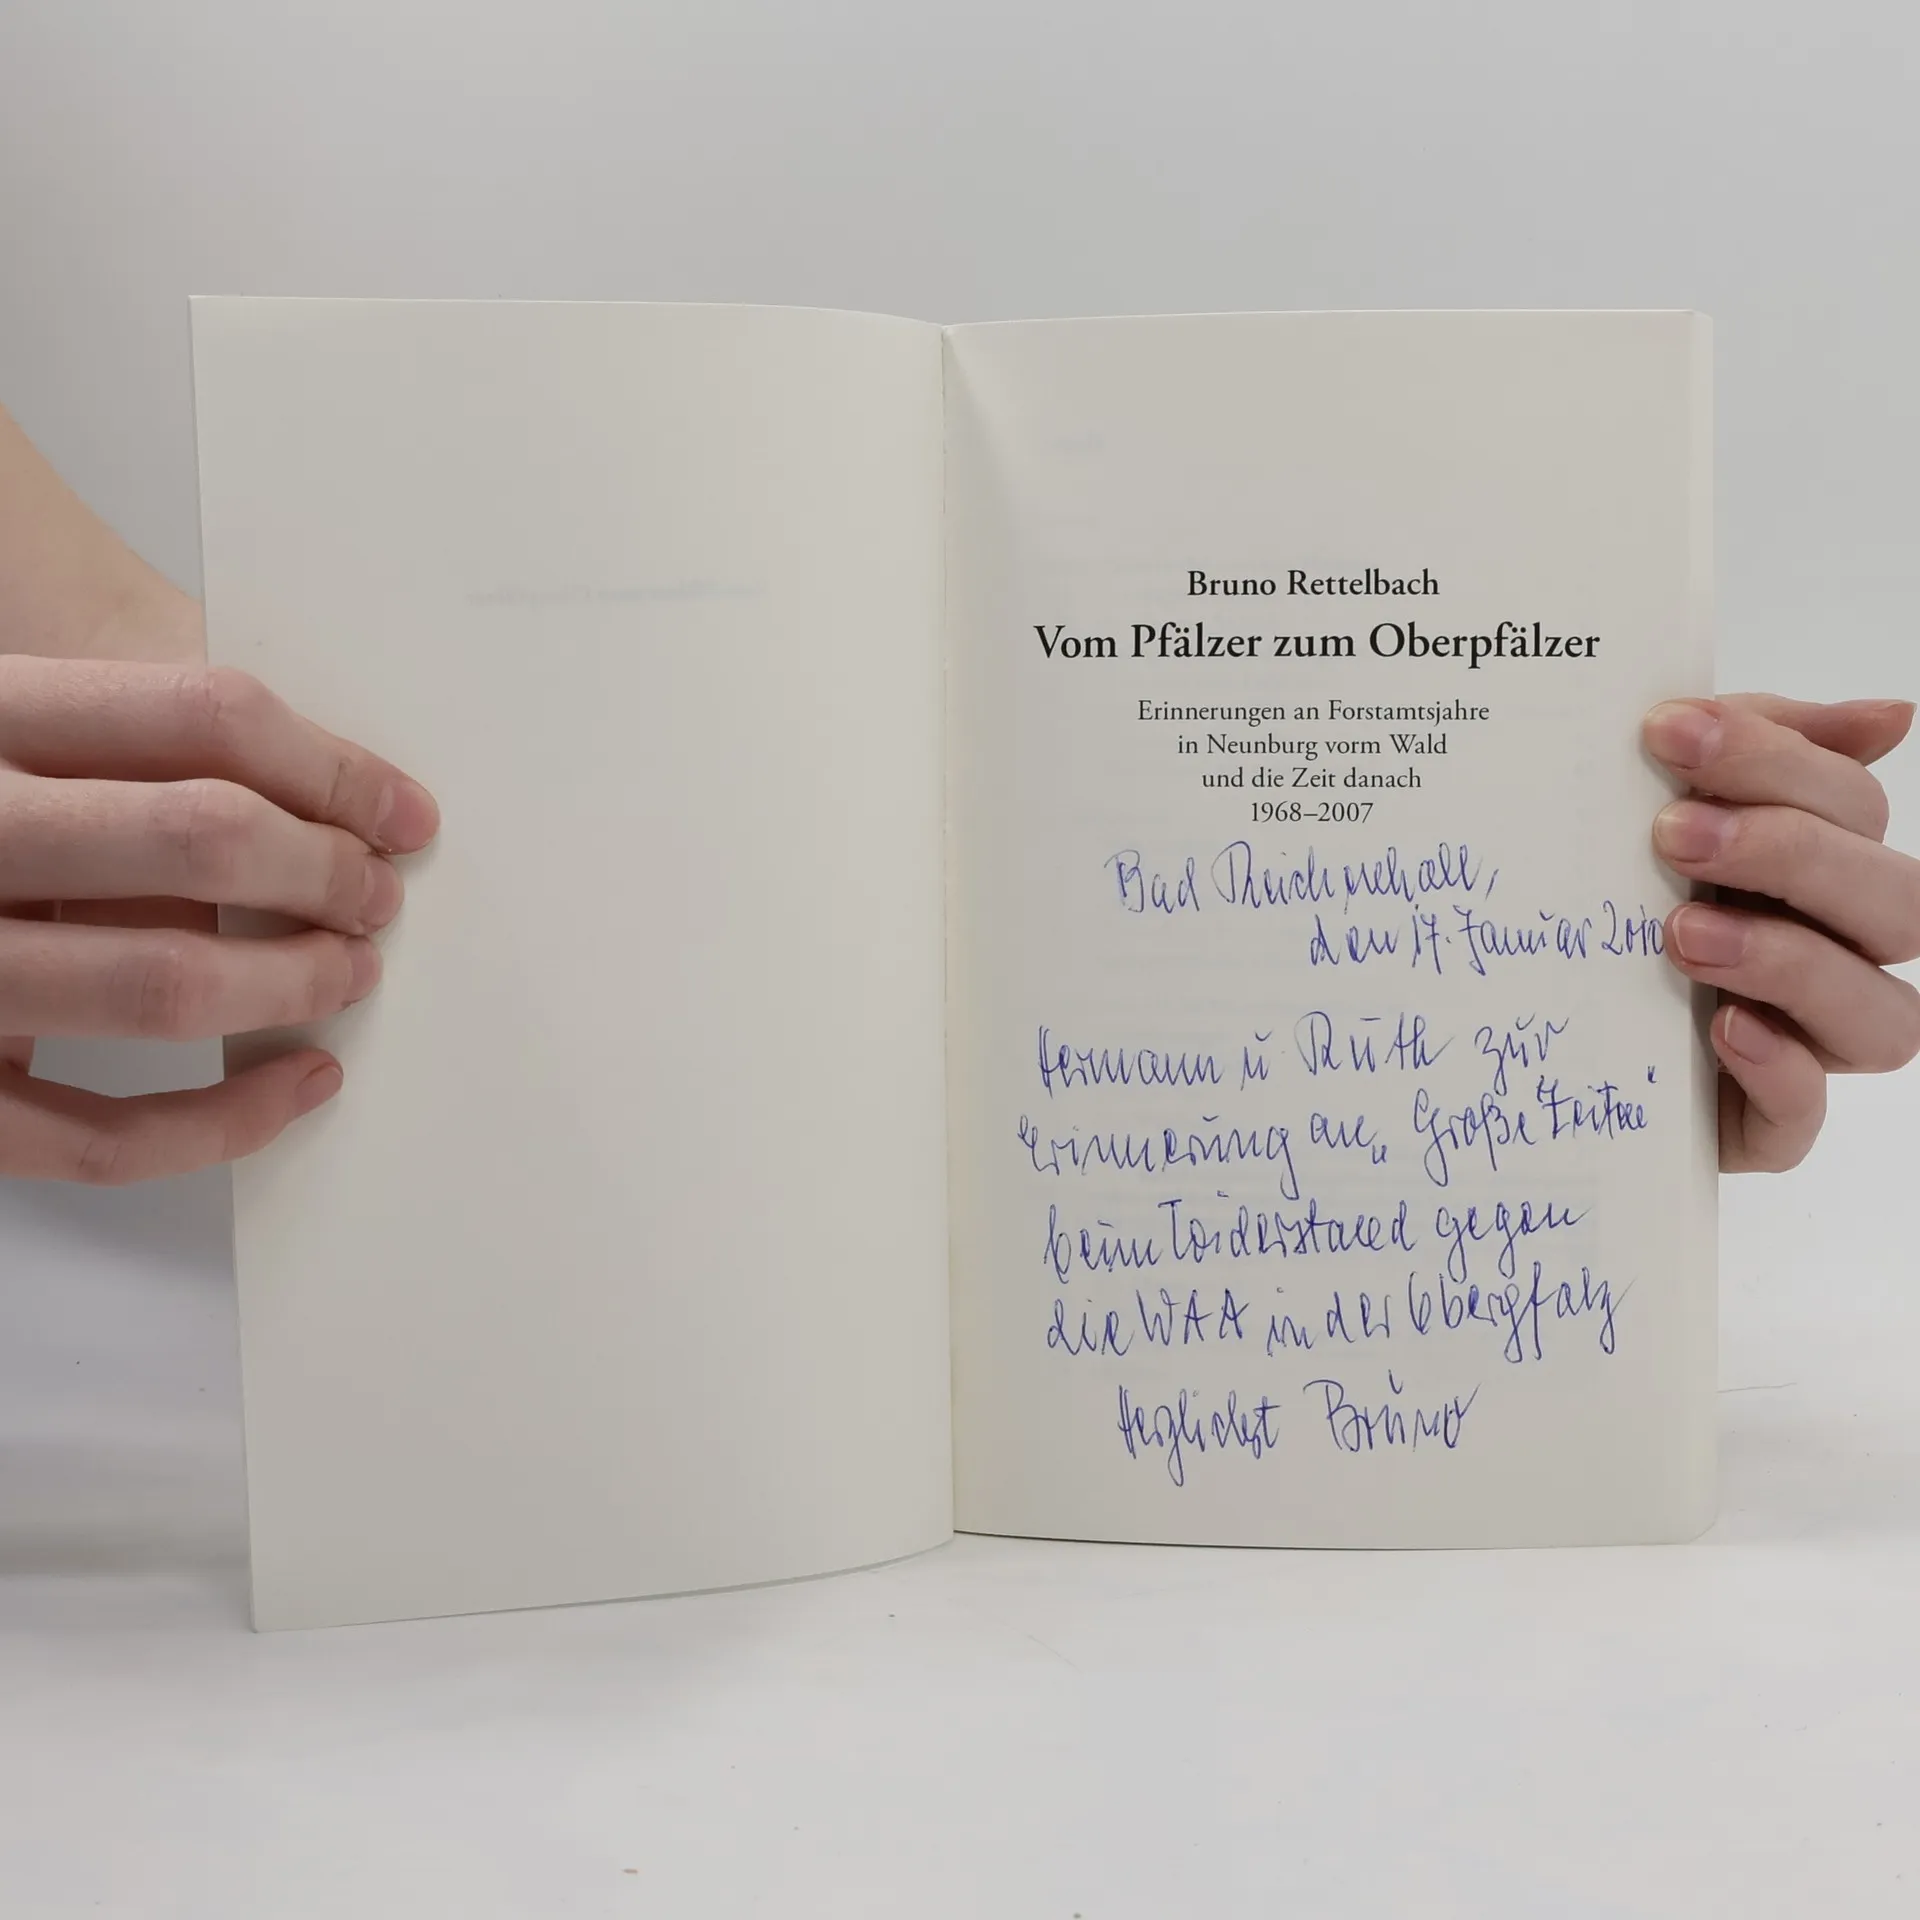 Bruno Rettelbach
Vom Pfälzer zum Oberpfälzer
Erinnerungen an Forstamtsjahre
in Neunburg vorm Wald
und die Zeit danach
1968–2007
Bad Reichenhall,
den 17. Januar 2010
Hermann u Ruth zur
Erinnerung an „Große Zeiten“
beim Widerstand gegen
die WAA in der Oberpfalz
Herzlichst Bruno